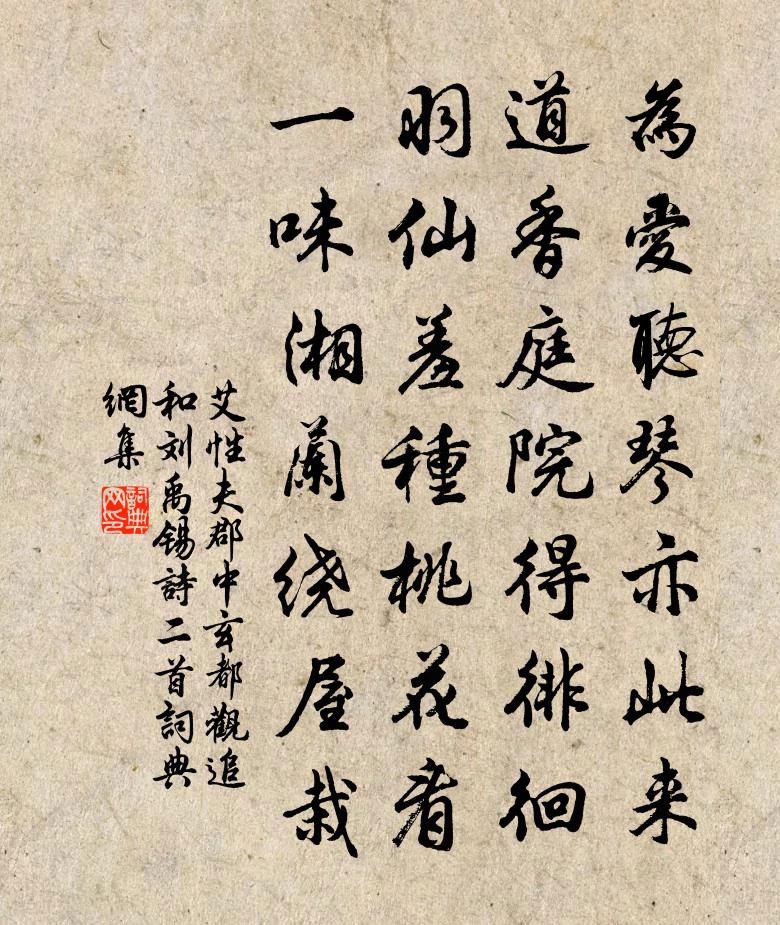 為愛聽琴亦此来
道香庭院得徘徊
羽仙羞種桃花看
一味湘蘭绕屋栽
艾性夫郡中玄都觀追
和刘禹錫詩二首詞典
網集
詞典
网印